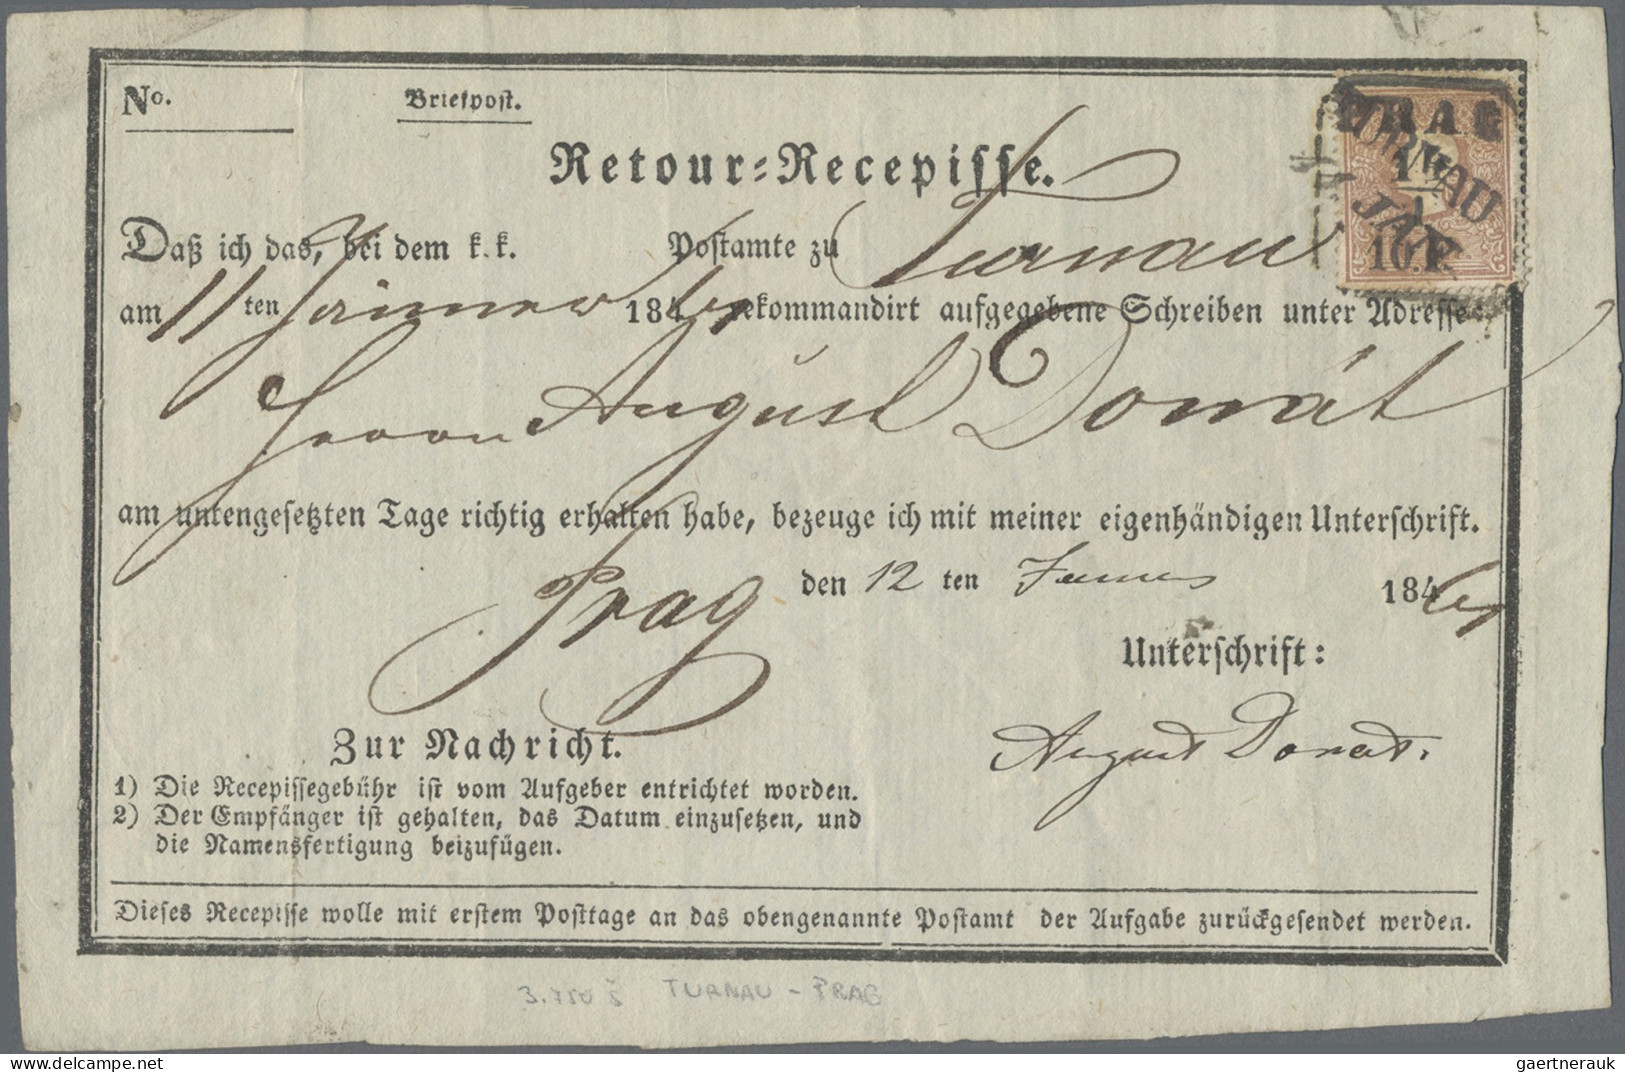 No.
Briefpost.
Retour-Recepisse.
Daß ich das, bei dem k.k. Postamte zu Turnau
am 11 ten Jänner 1861 rekommandirt aufgegebene Schreiben unter Adresse:
Herrn August Donát
am untengesetzten Tage richtig erhalten habe, bezeuge ich mit meiner eigenhändigen Unterschrift.
Prag den 12 ten Jänner 1861
Unterschrift:
August Donat.
Zur Nachricht.
1) Die Recepissegebühr ist vom Aufgeber entrichtet worden.
2) Der Empfänger ist gehalten, das Datum einzusetzen, und
die Namensfertigung beizufügen.
Dieses Recepisse wolle mit erstem Posttage an das obengenannte Postamt der Aufgabe zurückgesendet werden.
PRAG
TURNAU
JAN
3.750 š TURNAU - PRAG
www.delcampe.net
gaertnerauk